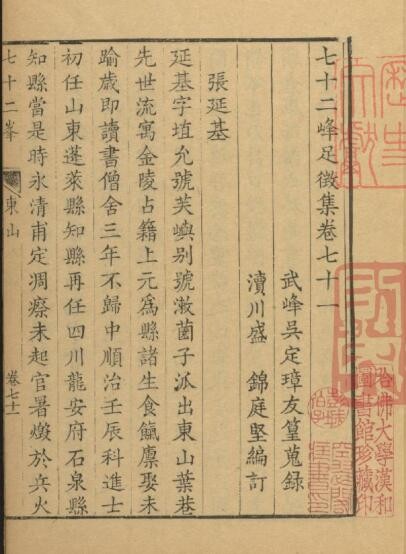 七十二峰足徵集卷七十一
武峰吳定璋友篁蒐錄
瀆川盛錦庭堅編訂
張延基
延基字埴允號芙嶼別號漱菌子派出東山葉巷
先世流寓金陵占籍上元為縣諸生食餼廩娶未
踰歲即讀書僧舍三年不歸中順治壬辰科進士
初任山東蓬萊縣知縣再任四川龍安府石泉縣
知縣當是時永清甫定凋瘵未起官署燬於兵火
七十二峯
東山
卷七十一
哈佛大學漢和圖書館珍藏印